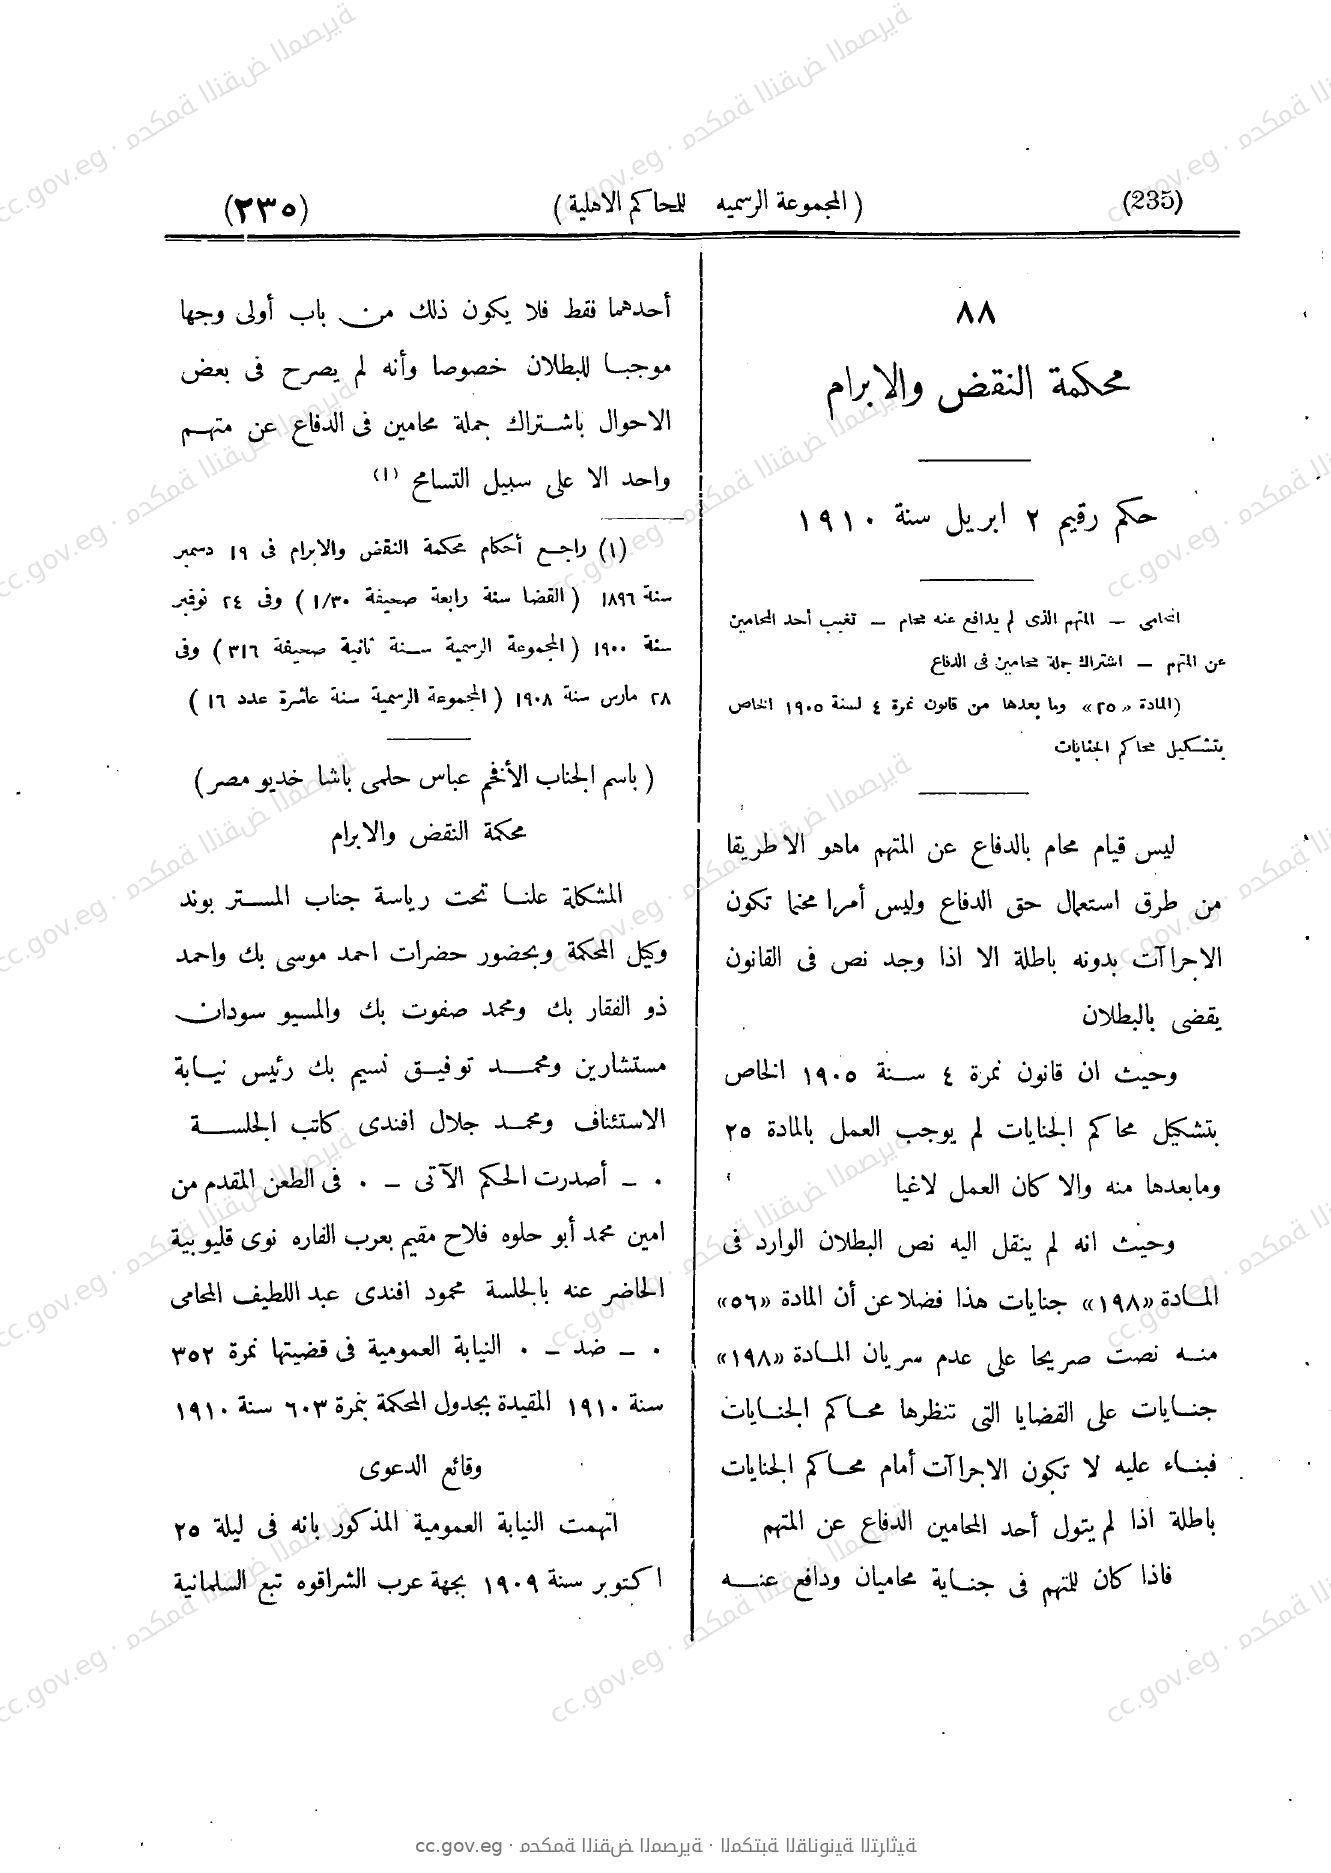 (235) ( المجموعة الرسمية للمحاكم الاهلية ) (٢٣٥)
٨٨
محكمة النقض والابرام
حكم رقيم ٢ ابريل سنة ١٩١٠
المحامى — المتهم الذى لم يدافع عنه محام — تغيب أحد المحامين
عن المتهم — اشتراك جملة محامين فى الدفاع
(المادة «٢٥» وما بعدها من قانون نمرة ٤ لسنة ١٩٠٥ الخاص
بتشكيل محاكم الجنايات
ليس قيام محام بالدفاع عن المتهم ماهو الا طريقا
من طرق استعمال حق الدفاع وليس أمرا محتما تكون
الاجراآت بدونه باطلة الا اذا وجد نص فى القانون
يقضى بالبطلان
وحيث ان قانون نمرة ٤ سنة ١٩٠٥ الخاص
بتشكيل محاكم الجنايات لم يوجب العمل بالمادة ٢٥
ومابعدها منه والا كان العمل لاغيا
وحيث انه لم ينقل اليه نص البطلان الوارد فى
المادة «١٩٨» جنايات هذا فضلا عن أن المادة «٥٦»
منه نصت صريحا على عدم سريان المادة «١٩٨»
جنايات على القضايا التى تنظرها محاكم الجنايات
فبناء عليه لا تكون الاجراآت أمام محاكم الجنايات
باطلة اذا لم يتول أحد المحامين الدفاع عن المتهم
فاذا كان للمتهم فى جناية محاميان ودافع عنه
أحدهما فقط فلا يكون ذلك من باب أولى وجها
موجبا للبطلان خصوصا وأنه لم يصرح فى بعض
الاحوال باشتراك جملة محامين فى الدفاع عن متهم
واحد الا على سبيل التسامح (١)
(١) راجع أحكام محكمة النقض والابرام فى ١٩ دسمبر
سنة ١٨٩٦ ( القضا سنة رابعة صحيفة ١/٣٠ ) وفى ٢٤ نوفمبر
سنة ١٩٠٠ ( المجموعة الرسمية سنة ثانية صحيفة ٣١٦ ) وفى
٢٨ مارس سنة ١٩٠٨ ( المجموعة الرسمية سنة عاشرة عدد ١٦ )
( باسم الجناب الأفخم عباس حلمى باشا خديو مصر )
محكمة النقض والابرام
المشكلة علنا تحت رياسة جناب المستر بوند
وكيل المحكمة وبحضور حضرات احمد موسى بك واحمد
ذو الفقار بك ومحمد صفوت بك والمسيو سودان
مستشارين ومحمد توفيق نسيم بك رئيس نيابة
الاستئناف ومحمد جلال افندى كاتب الجلسة
٠ — أصدرت الحكم الآتى — ٠ فى الطعن المقدم من
امين محمد أبو حلوه فلاح مقيم بعرب الفاره نوى قليوبية
الحاضر عنه بالجلسة محمود افندى عبد اللطيف المحامى
٠ — ضد — ٠ النيابة العمومية فى قضيتها نمرة ٣٥٢
سنة ١٩١٠ المقيدة بجدول المحكمة بنمرة ٦٠٣ سنة ١٩١٠
وقائع الدعوى
اتهمت النيابة العمومية المذكور بانه فى ليلة ٢٥
اكتوبر سنة ١٩٠٩ بجهة عرب الشراقوه تبع السلمانية
cc.gov.eg · محكمة النقض المصرية · المكتبة القانونية التراثية